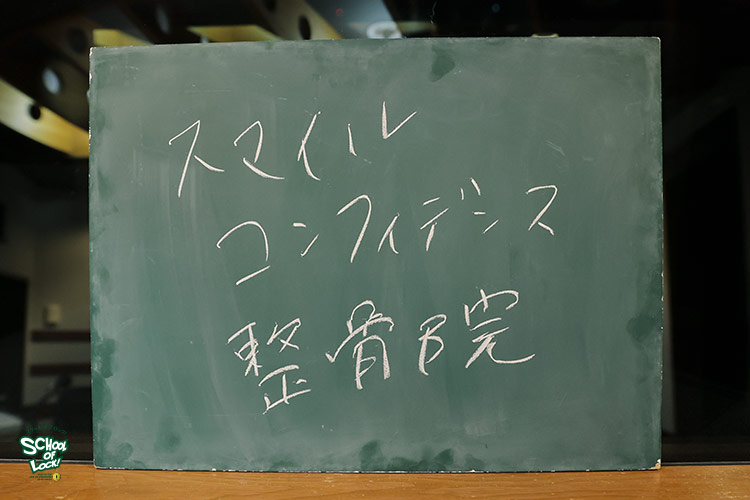 スマイル
コンフィデンス
整骨院
SCHOOL
OF
LOCK!